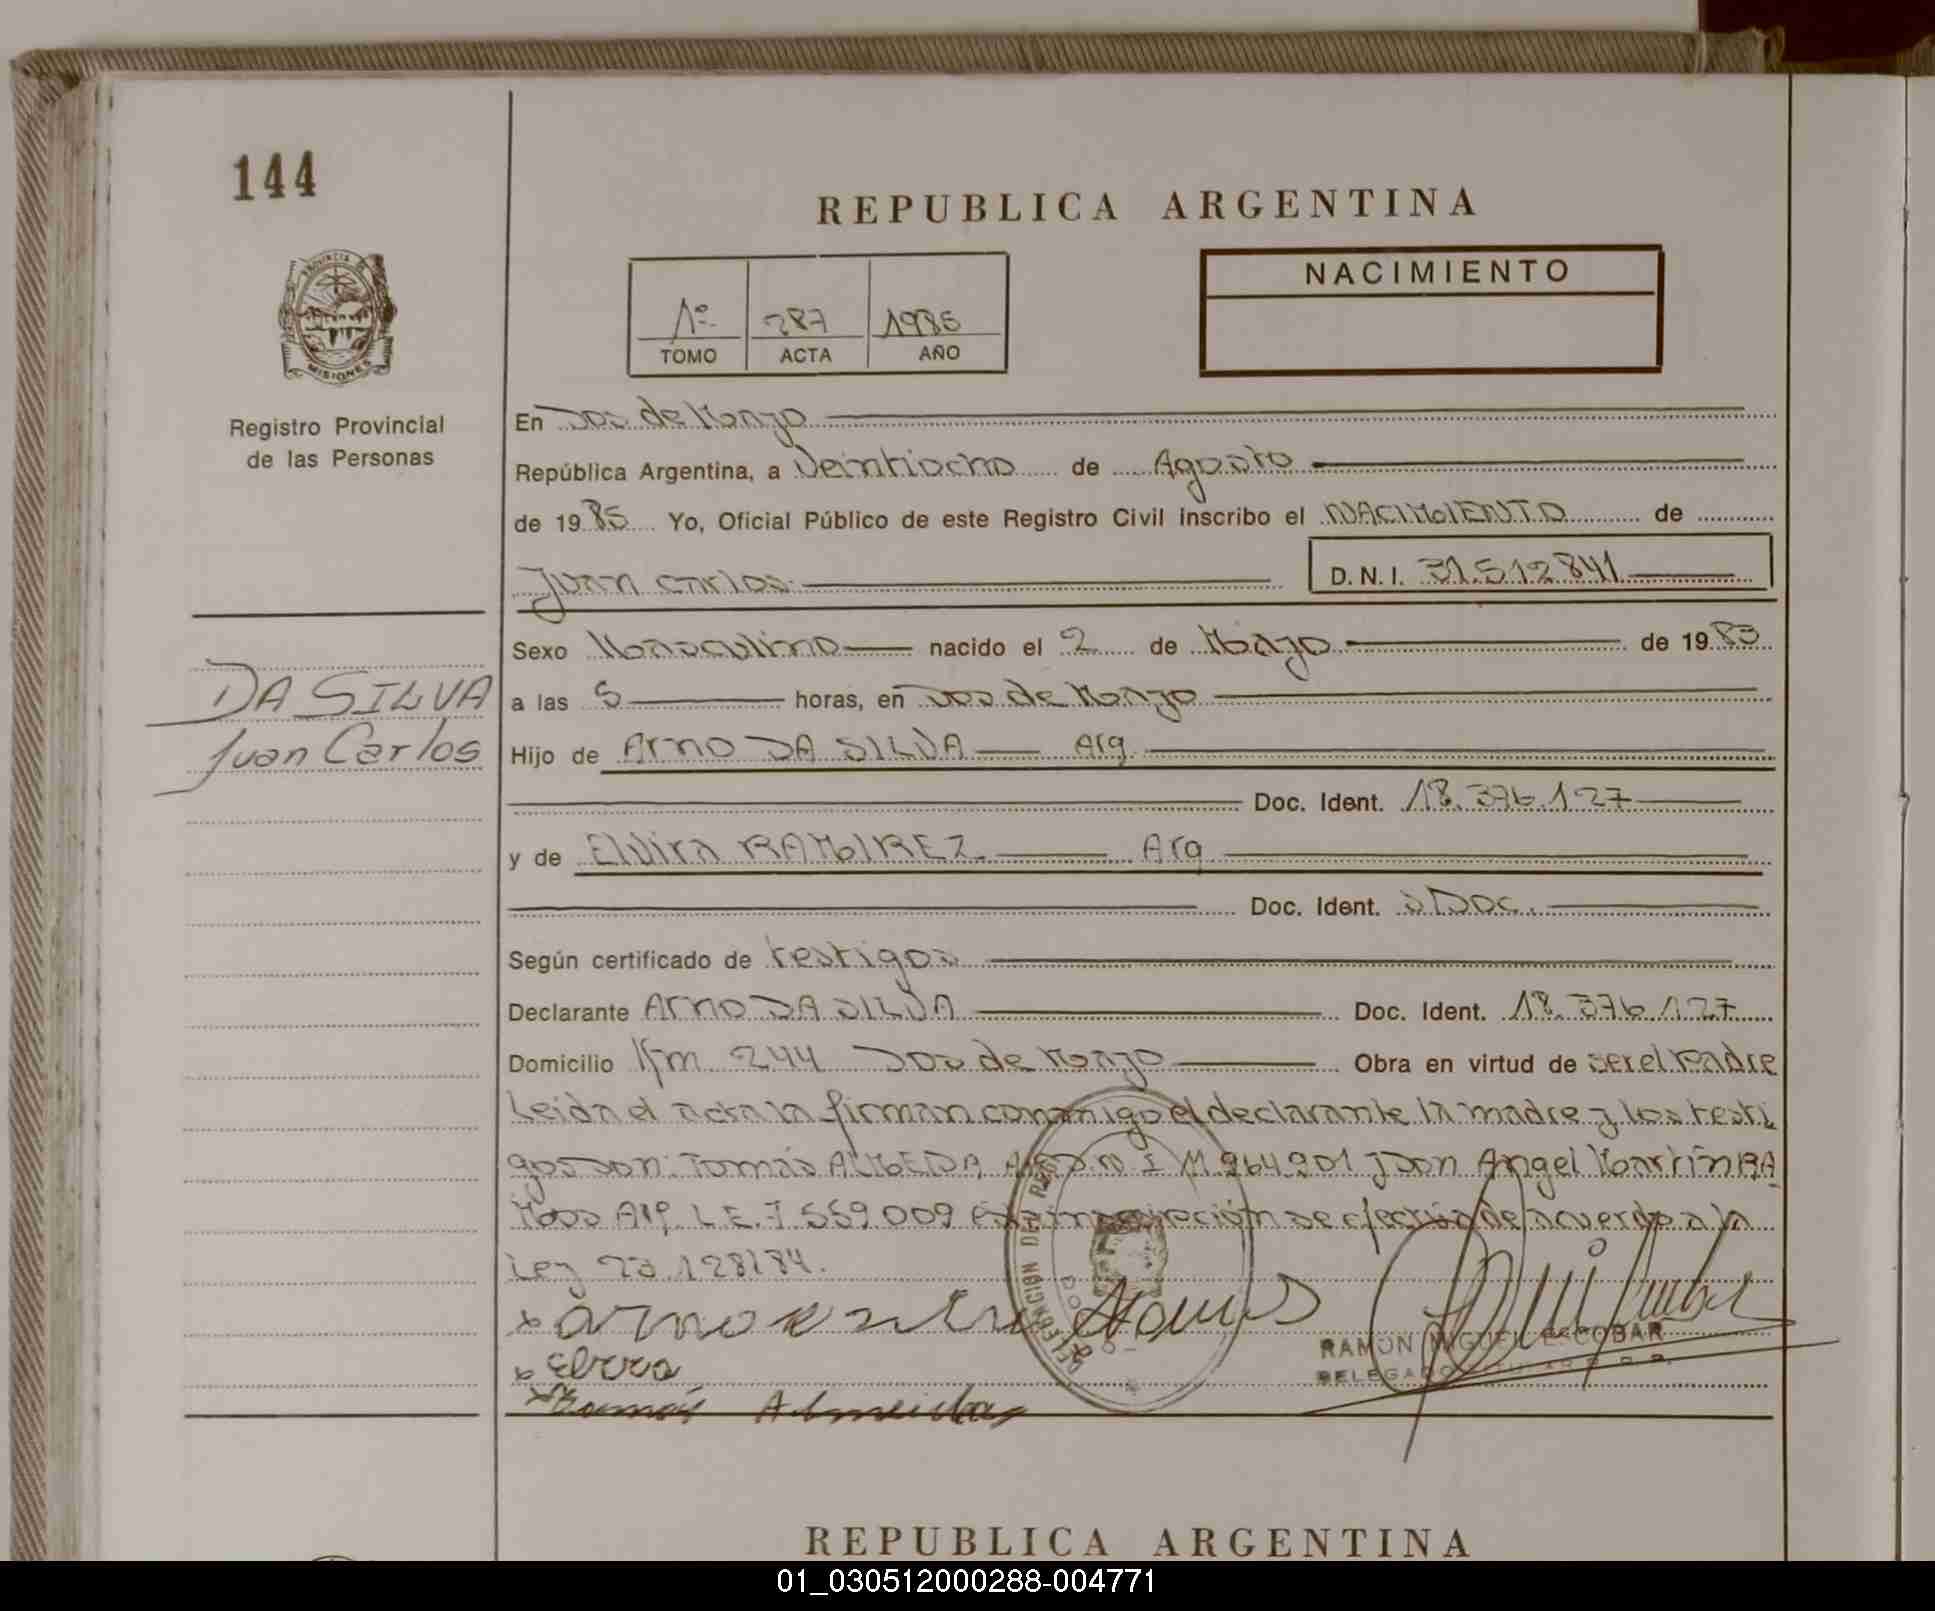 144
REPUBLICA ARGENTINA
PROVINCIA DE
MISIONES
1º 287 1985
TOMO ACTA AÑO
NACIMIENTO
Registro Provincial
de las Personas
En Dos de Mayo
República Argentina, a Veintiocho de Agosto
de 1985 Yo, Oficial Público de este Registro Civil inscribo el NACIMIENTO de
Juan Carlos D.N.I. 31.512841
Sexo Masculino nacido el 2 de Mayo de 1983
DA SILVA
Juan Carlos
a las 5 horas, en Dos de Mayo
Hijo de Arno DA SILVA Arg.
Doc. Ident. 18.376.127
y de Elvira RAMIREZ Arg
Doc. Ident. S/Doc.
Según certificado de testigos
Declarante Arno DA SILVA Doc. Ident. 18.376.127
Domicilio Km. 244 Dos de Mayo Obra en virtud de ser el Padre
Leida el acta la firman conmigo el declarante la madre y los testi
gos Don: Tomás ALMEDA D.N.I 11.964.901 y Don Angel Martín RA
Mos Arg. L.E. 7.559.009 inscripción se efectúa de acuerdo a la
Ley 23.128/84.
x Arno Ramos
x
x Tomás Almeida
RAMON MIGUEL ESCOBAR
DELEGADO TITULAR
DELEGACION DEL
REPUBLICA ARGENTINA
01_030512000288-004771